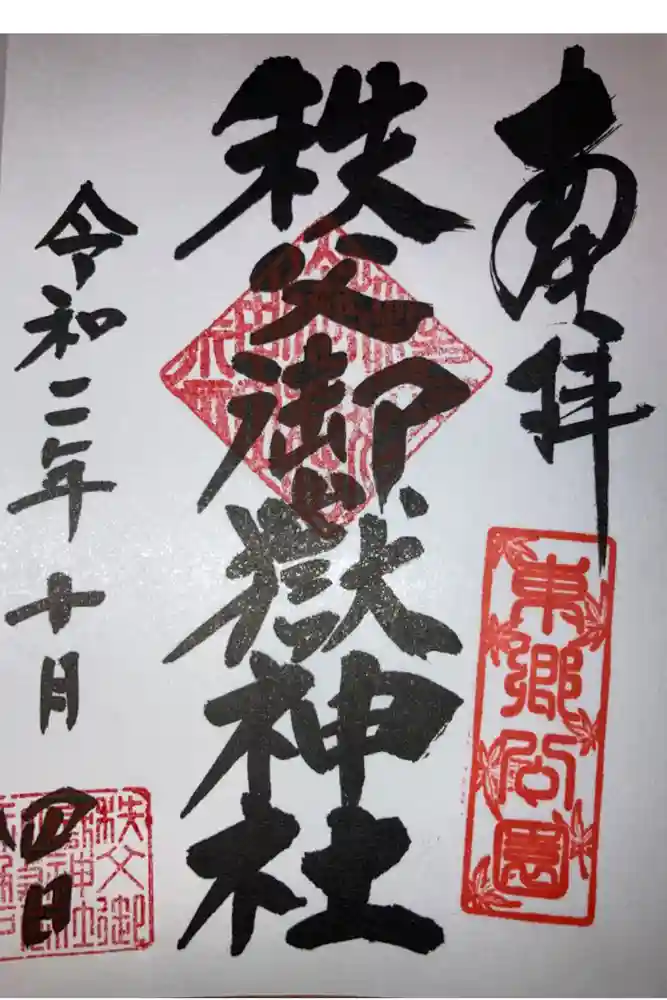 奉拝
東郷公園
秩父御嶽神社
令和二年十月四日
秩父御
嶽神社